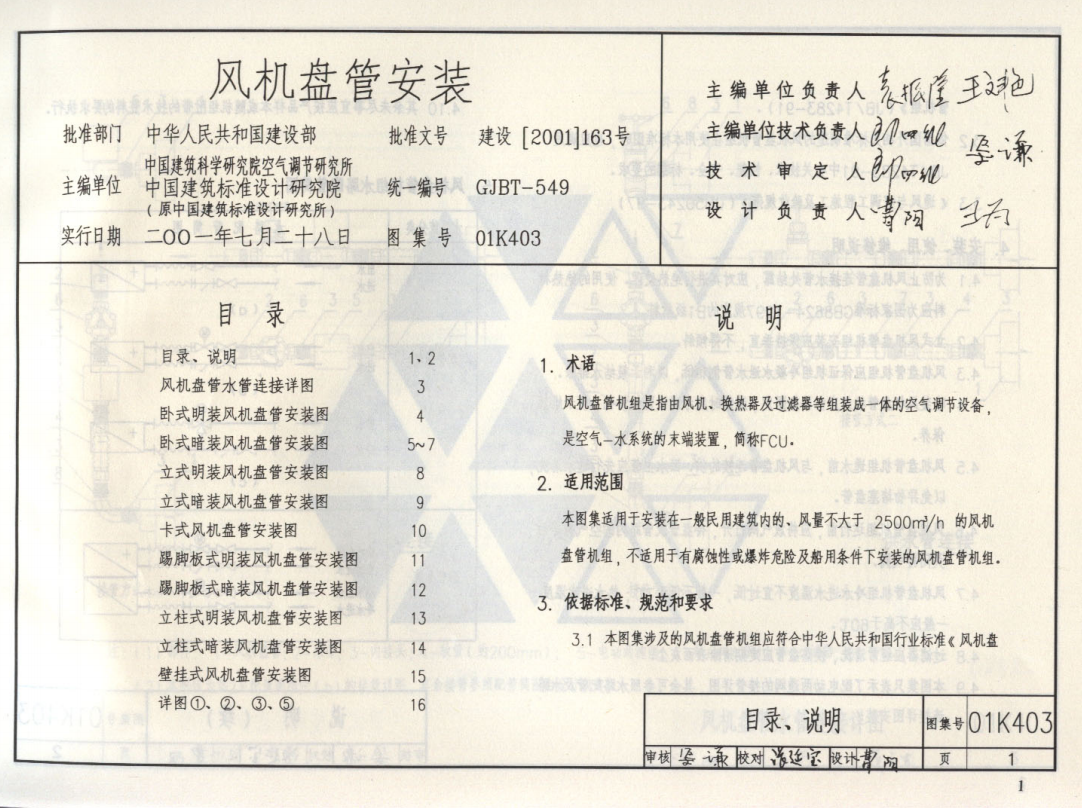 风机盘管安装
批准部门 中华人民共和国建设部 批准文号 建设 [2001]163号
主编单位 中国建筑科学研究院空气调节研究所
中国建筑标准设计研究院
(原中国建筑标准设计研究所)
统一编号 GJBT-549
实行日期 二〇〇一年七月二十八日 图集号 01K403
主编单位负责人
主编单位技术负责人
技术审定人
设计负责人 曹阳
目录
目录、说明 1、2
风机盘管水管连接详图 3
卧式明装风机盘管安装图 4
卧式暗装风机盘管安装图 5~7
立式明装风机盘管安装图 8
立式暗装风机盘管安装图 9
卡式风机盘管安装图 10
踢脚板式明装风机盘管安装图 11
踢脚板式暗装风机盘管安装图 12
立柱式明装风机盘管安装图 13
立柱式暗装风机盘管安装图 14
壁挂式风机盘管安装图 15
详图①、②、③、⑤ 16
说明
1. 术语
风机盘管机组是指由风机、换热器及过滤器等组装成一体的空气调节设备,
是空气-水系统的末端装置,简称FCU.
2. 适用范围
本图集适用于安装在一般民用建筑内的、风量不大于 2500m³/h 的风机
盘管机组,不适用于有腐蚀性或爆炸危险及船用条件下安装的风机盘管机组.
3. 依据标准、规范和要求
3.1 本图集涉及的风机盘管机组应符合中华人民共和国行业标准《风机盘
目录、说明 图集号 01K403
审核 校对 设计 曹阳 页 1
1